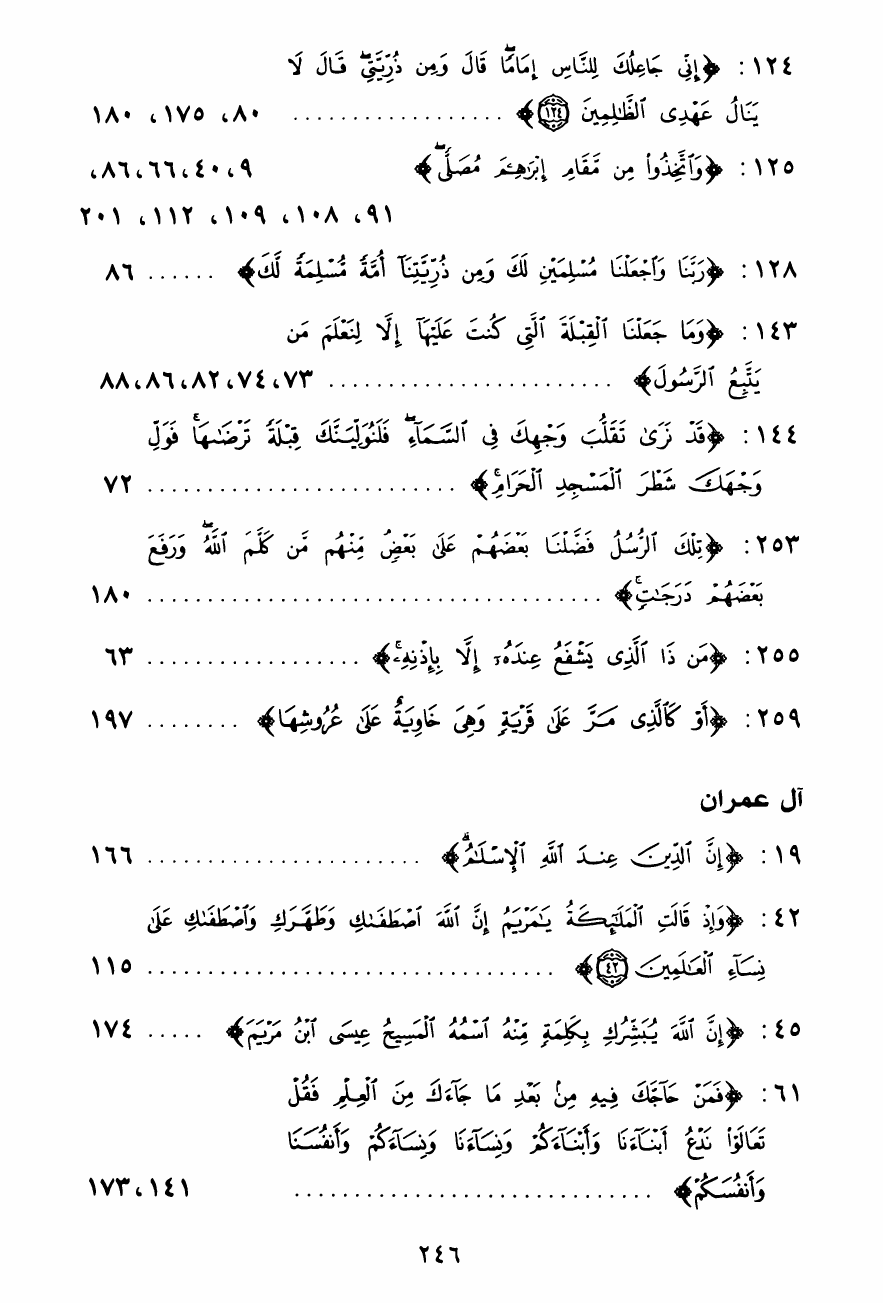 ١٢٤ : ﴿إِنِّي جَاعِلُكَ لِلنَّاسِ إِمَامًاۖ قَالَ وَمِن ذُرِّيَّتِيۖ قَالَ لَا
يَنَالُ عَهْدِى ٱلظَّٰلِمِينَ ١٢٤﴾ .................. ٨٠، ١٧٥، ١٨٠
١٢٥ : ﴿وَٱتَّخِذُوا۟ مِن مَّقَامِ إِبْرَٰهِـۧمَ مُصَلًّىۖ﴾ ٩،٤٠،٦٦،٨٦،
٩١، ١٠٨، ١٠٩، ١١٢، ٢٠١
١٢٨ : ﴿رَبَّنَا وَٱجْعَلْنَا مُسْلِمَيْنِ لَكَ وَمِن ذُرِّيَّتِنَآ أُمَّةً مُّسْلِمَةً لَّكَ﴾ ...... ٨٦
١٤٣ : ﴿وَمَا جَعَلْنَا ٱلْقِبْلَةَ ٱلَّتِى كُنتَ عَلَيْهَآ إِلَّا لِنَعْلَمَ مَن
يَتَّبِعُ ٱلرَّسُولَ﴾ ........................ ٧٣،٧٤،٨٢،٨٦،٨٨
١٤٤ : ﴿قَدْ نَرَىٰ تَقَلُّبَ وَجْهِكَ فِى ٱلسَّمَآءِۖ فَلَنُوَلِّيَنَّكَ قِبْلَةً تَرْضَىٰهَاۚ فَوَلِّ
وَجْهَكَ شَطْرَ ٱلْمَسْجِدِ ٱلْحَرَامِۚ﴾ .......................... ٧٢
٢٥٣ : ﴿تِلْكَ ٱلرُّسُلُ فَضَّلْنَا بَعْضَهُمْ عَلَىٰ بَعْضٍ مِّنْهُم مَّن كَلَّمَ ٱللَّهُۖ وَرَفَعَ
بَعْضَهُمْ دَرَجَٰتٍۚ﴾ ...................................... ١٨٠
٢٥٥ : ﴿مَن ذَا ٱلَّذِى يَشْفَعُ عِندَهُۥٓ إِلَّا بِإِذْنِهِۦۚ﴾ .................. ٦٣
٢٥٩ : ﴿أَوْ كَٱلَّذِى مَرَّ عَلَىٰ قَرْيَةٍ وَهِىَ خَاوِيَةٌ عَلَىٰ عُرُوشِهَا﴾ ........ ١٩٧
آل عمران
١٩ : ﴿إِنَّ ٱلدِّينَ عِندَ ٱللَّهِ ٱلْإِسْلَٰمُۗ﴾ ....................... ١٦٦
٤٢ : ﴿وَإِذْ قَالَتِ ٱلْمَلَٰٓئِكَةُ يَٰمَرْيَمُ إِنَّ ٱللَّهَ ٱصْطَفَىٰكِ وَطَهَّرَكِ وَٱصْطَفَىٰكِ عَلَىٰ
نِسَآءِ ٱلْعَٰلَمِينَ ٤٢﴾ .................................. ١١٥
٤٥ : ﴿إِنَّ ٱللَّهَ يُبَشِّرُكِ بِكَلِمَةٍ مِّنْهُ ٱسْمُهُ ٱلْمَسِيحُ عِيسَى ٱبْنُ مَرْيَمَ﴾ ..... ١٧٤
٦١ : ﴿فَمَنْ حَآجَّكَ فِيهِ مِنۢ بَعْدِ مَا جَآءَكَ مِنَ ٱلْعِلْمِ فَقُلْ
تَعَالَوْا۟ نَدْعُ أَبْنَآءَنَا وَأَبْنَآءَكُمْ وَنِسَآءَنَا وَنِسَآءَكُمْ وَأَنفُسَنَا
وَأَنفُسَكُمْ﴾ .............................. ١٤١،١٧٣
٢٤٦